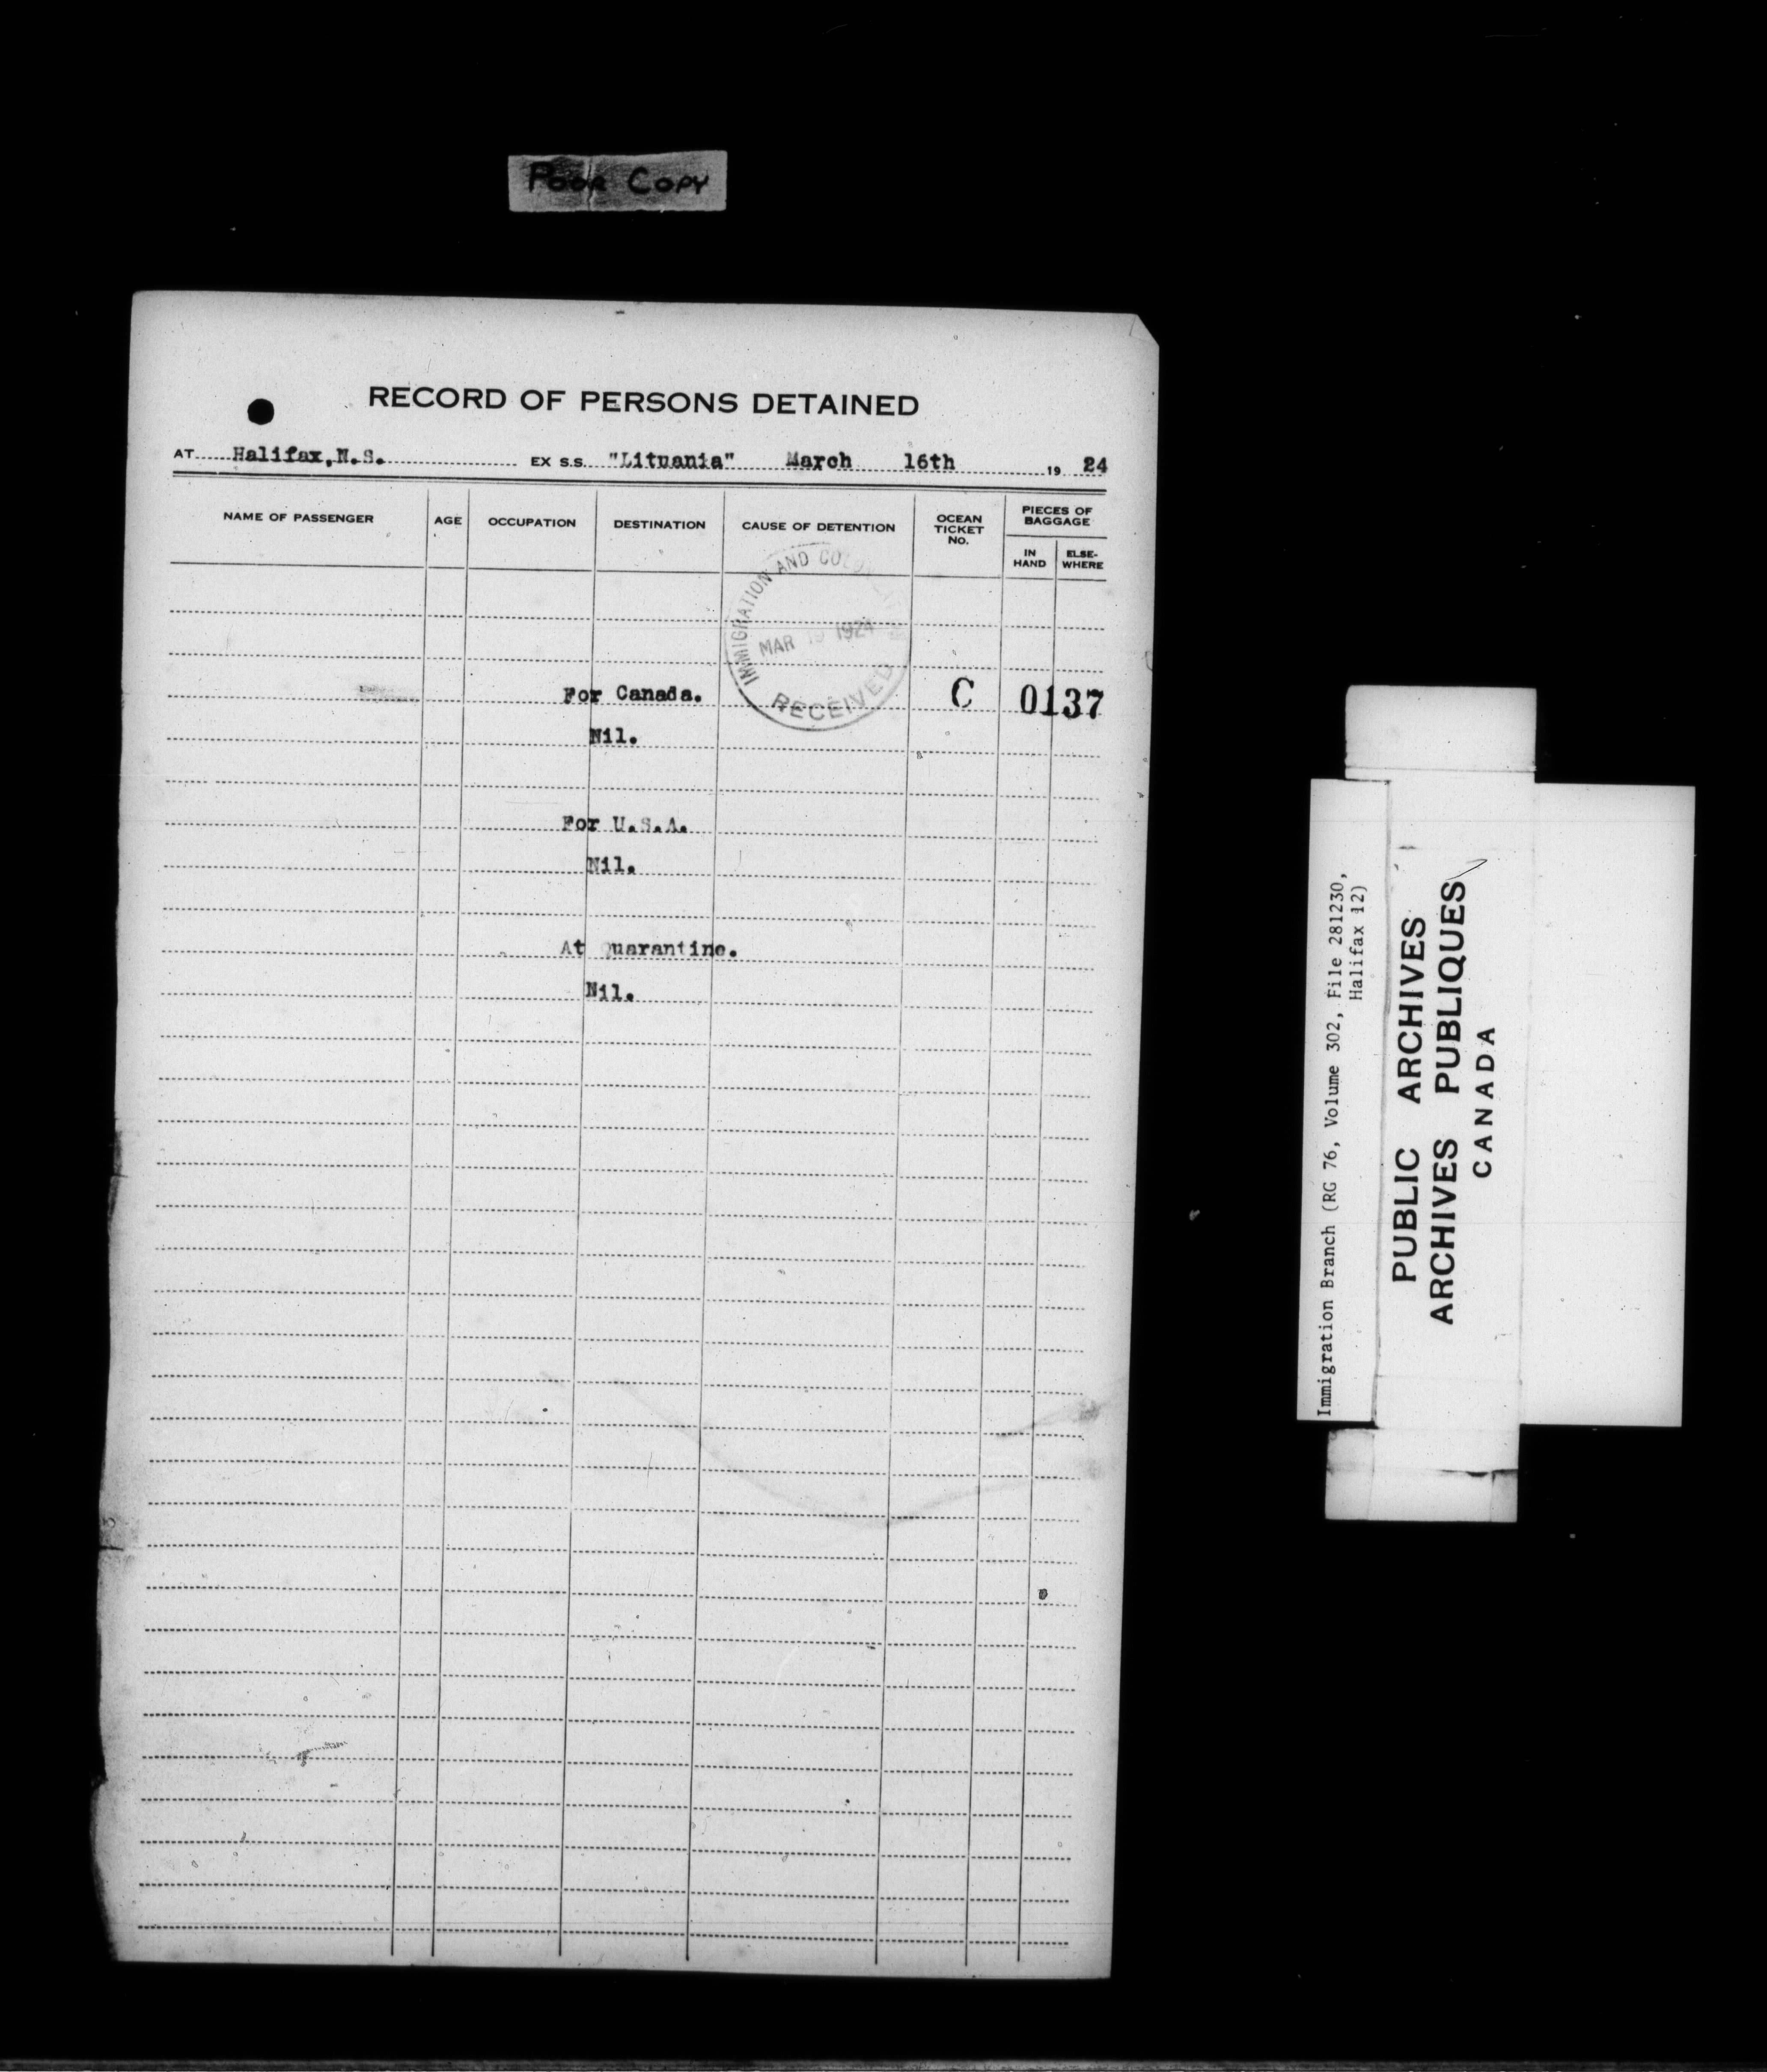 Poor Copy
RECORD OF PERSONS DETAINED
AT Halifax, N.S. EX S.S. "Lituania" March 16th 19 24
NAME OF PASSENGER AGE OCCUPATION DESTINATION CAUSE OF DETENTION OCEAN TICKET NO. PIECES OF BAGGAGE
IN HAND ELSE-WHERE
IMMIGRATION AND
MAR 19 1924
RECEIVED
For Canada. C 0137
Nil.
For U.S.A.
Nil.
At Quarantine.
Nil.
Immigration Branch (RG 76, Volume 302, File 281230,
Halifax 12)
PUBLIC ARCHIVES
ARCHIVES PUBLIQUES
CANADA